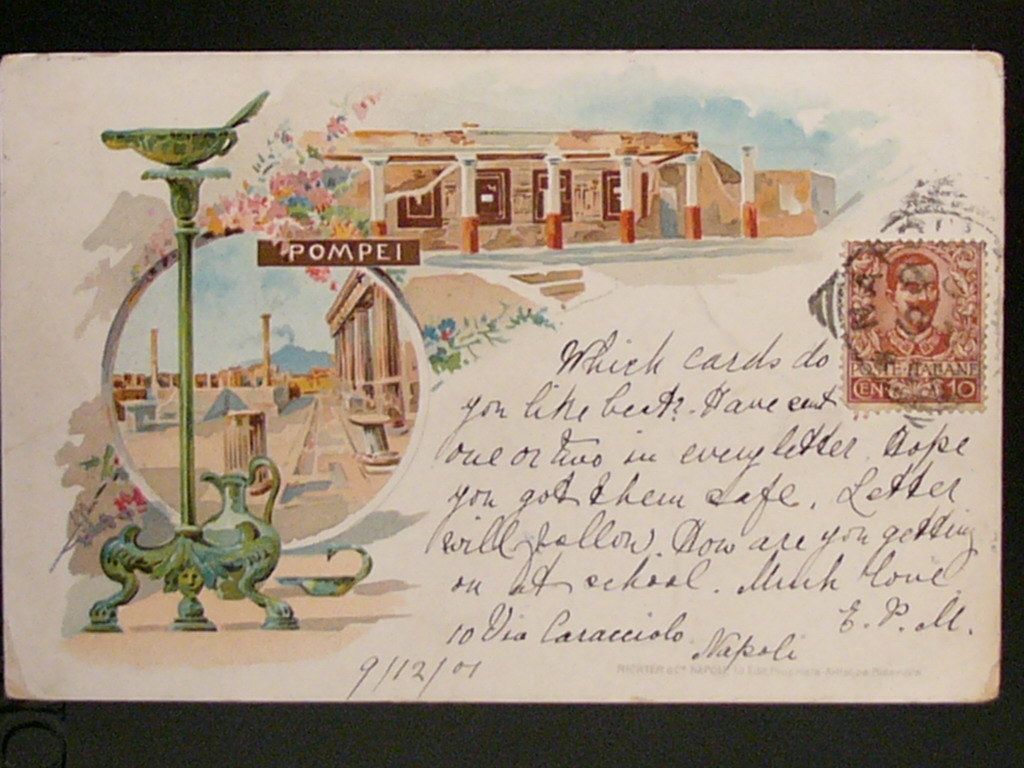 POMPEI
NA
POSTE ITALIANE
CENT 10
Which cards do
you like best? Have sent
one or two in every letter. Hope
you got them safe. Letter
will follow. How are you getting
on at school. Much love
E. P. M.
10 Via Caracciolo
Napoli
9/12/01
RICHTER & Co. NAPOLI